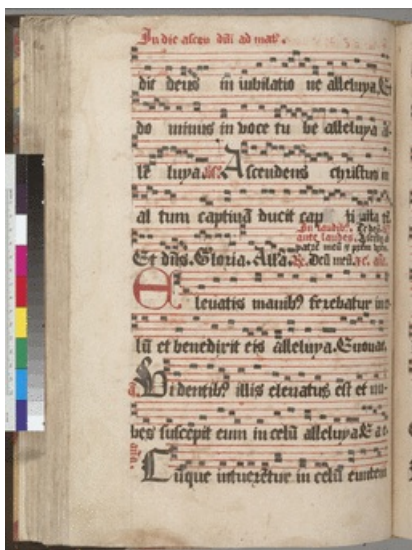 In die ascen dñi ad mat⁹.
die deus in iubilatio ne alleluya. Et
do minus in voce tu be alleluya al
le luya. Ascendens christus in
al tum captiuã ducit cap
In laudib⁹.
ante laudes. Ascendo
patrẽ meũ
Et dñs. Gloria. Alla. Deũ meũ.
Eleuatis manib⁹ ferebatur in ce
lũ et benedixit eis alleluya. Euouae.
Videntib⁹ illis eleuatus est et nu
bes suscepit eum in celũ alleluya. E
Cũque intuerẽtur in celũ euntem